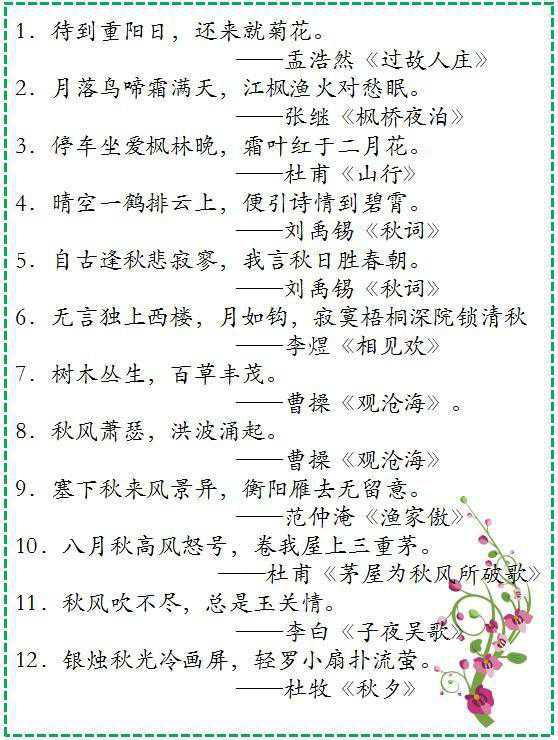 1．待到重阳日，还来就菊花。
——孟浩然《过故人庄》
2．月落鸟啼霜满天，江枫渔火对愁眠。
——张继《枫桥夜泊》
3．停车坐爱枫林晚，霜叶红于二月花。
——杜甫《山行》
4．晴空一鹤排云上，便引诗情到碧霄。
——刘禹锡《秋词》
5．自古逢秋悲寂寥，我言秋日胜春朝。
——刘禹锡《秋词》
6．无言独上西楼，月如钩，寂寞梧桐深院锁清秋
——李煜《相见欢》
7．树木丛生，百草丰茂。
——曹操《观沧海》。
8．秋风萧瑟，洪波涌起。
——曹操《观沧海》
9．塞下秋来风景异，衡阳雁去无留意。
——范仲淹《渔家傲》
10．八月秋高风怒号，卷我屋上三重茅。
——杜甫《茅屋为秋风所破歌》
11．秋风吹不尽，总是玉关情。
——李白《子夜吴歌》
12．银烛秋光冷画屏，轻罗小扇扑流萤。
——杜牧《秋夕》